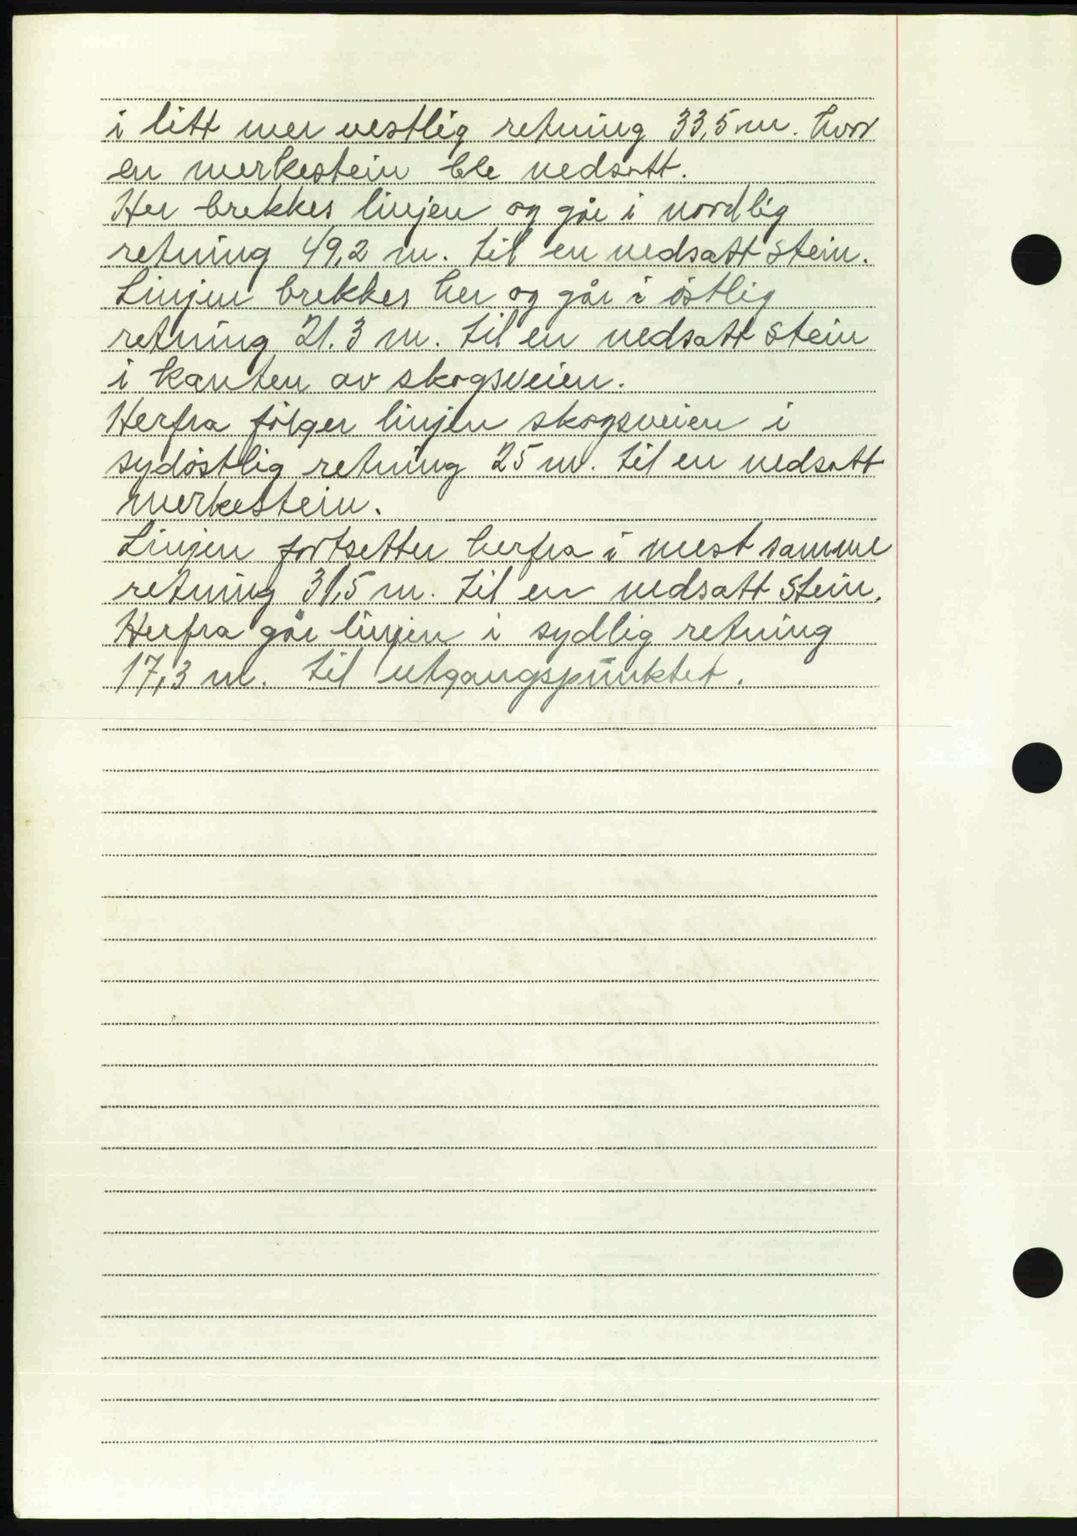 i litt mer vestlig retning 33,5 m. hvor
en merkestein ble nedsatt.
Her brekkes linjen og går i nordlig
retning 49,2 m. til en nedsatt stein.
Linjen brekkes her og går i östlig
retning 21.3 m. til en nedsatt stein
i kanten av skogsveien.
Herfra fölger linjen skogsveien i
sydöstlig retning 25 m. til en nedsatt
merkestein.
Linjen fortsetter herfra i mest samme
retning 31,5 m. til en nedsatt stein.
Herfra går linjen i sydlig retning
17,3 m. til utgangspunktet.